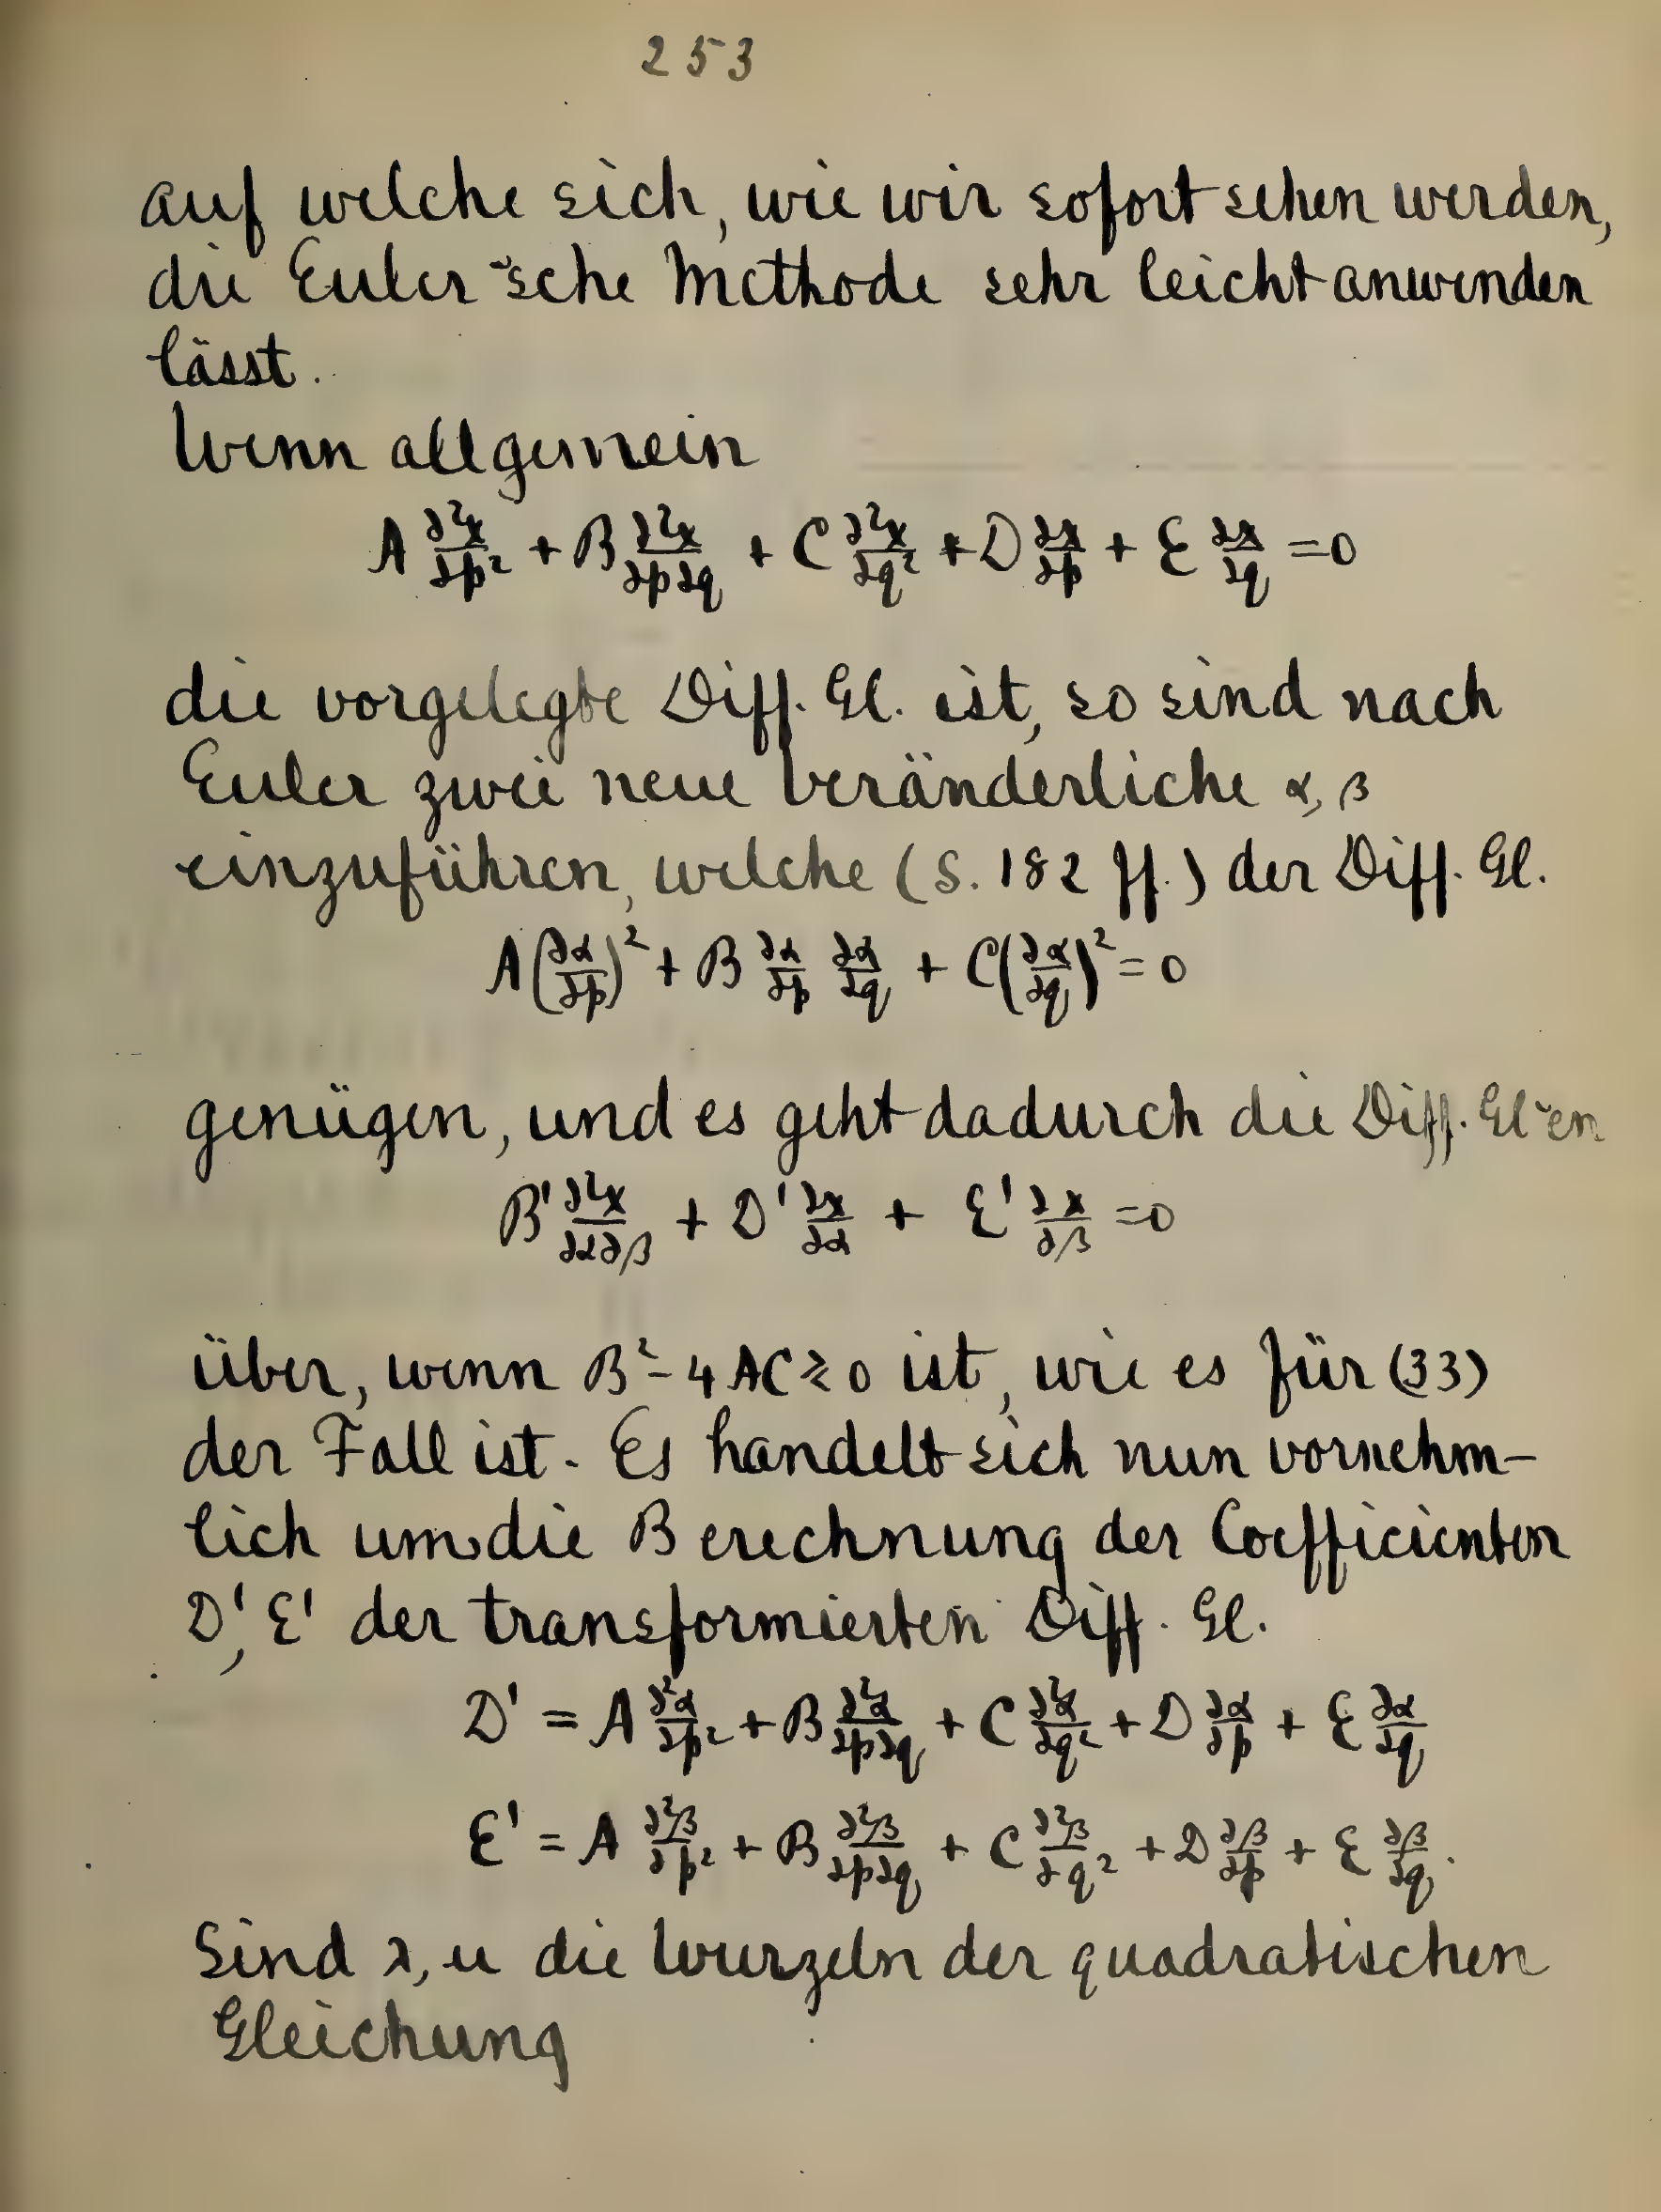 253
auf welche sich, wie wir sofort sehen werden,
die Euler'sche Methode sehr leicht anwenden
lässt.
Wenn allgemein
A ∂²x/∂p² + B ∂²x/∂p∂q + C ∂²x/∂q² + D ∂x/∂p + E ∂x/∂q = 0
die vorgelegte Diff. Gl. ist, so sind nach
Euler zwei neue Veränderliche α, β
einzuführen, welche (S. 182 ff.) der Diff. Gl.
A(∂α/∂p)² + B ∂α/∂p ∂α/∂q + C(∂α/∂q)² = 0
genügen, und es geht dadurch die Diff. Gl'en
B' ∂²x/∂α∂β + D' ∂x/∂α + E' ∂x/∂β = 0
über, wenn B² - 4AC ≷ 0 ist, wie es für (33)
der Fall ist. Es handelt sich nun vornehm-
lich um die Berechnung der Coefficienten
D', E' der transformierten Diff. Gl.
D' = A ∂²α/∂p² + B ∂²α/∂p∂q + C ∂²α/∂q² + D ∂α/∂p + E ∂α/∂q
E' = A ∂²β/∂p² + B ∂²β/∂p∂q + C ∂²β/∂q² + D ∂β/∂p + E ∂β/∂q.
Sind λ, μ die Wurzeln der quadratischen
Gleichung